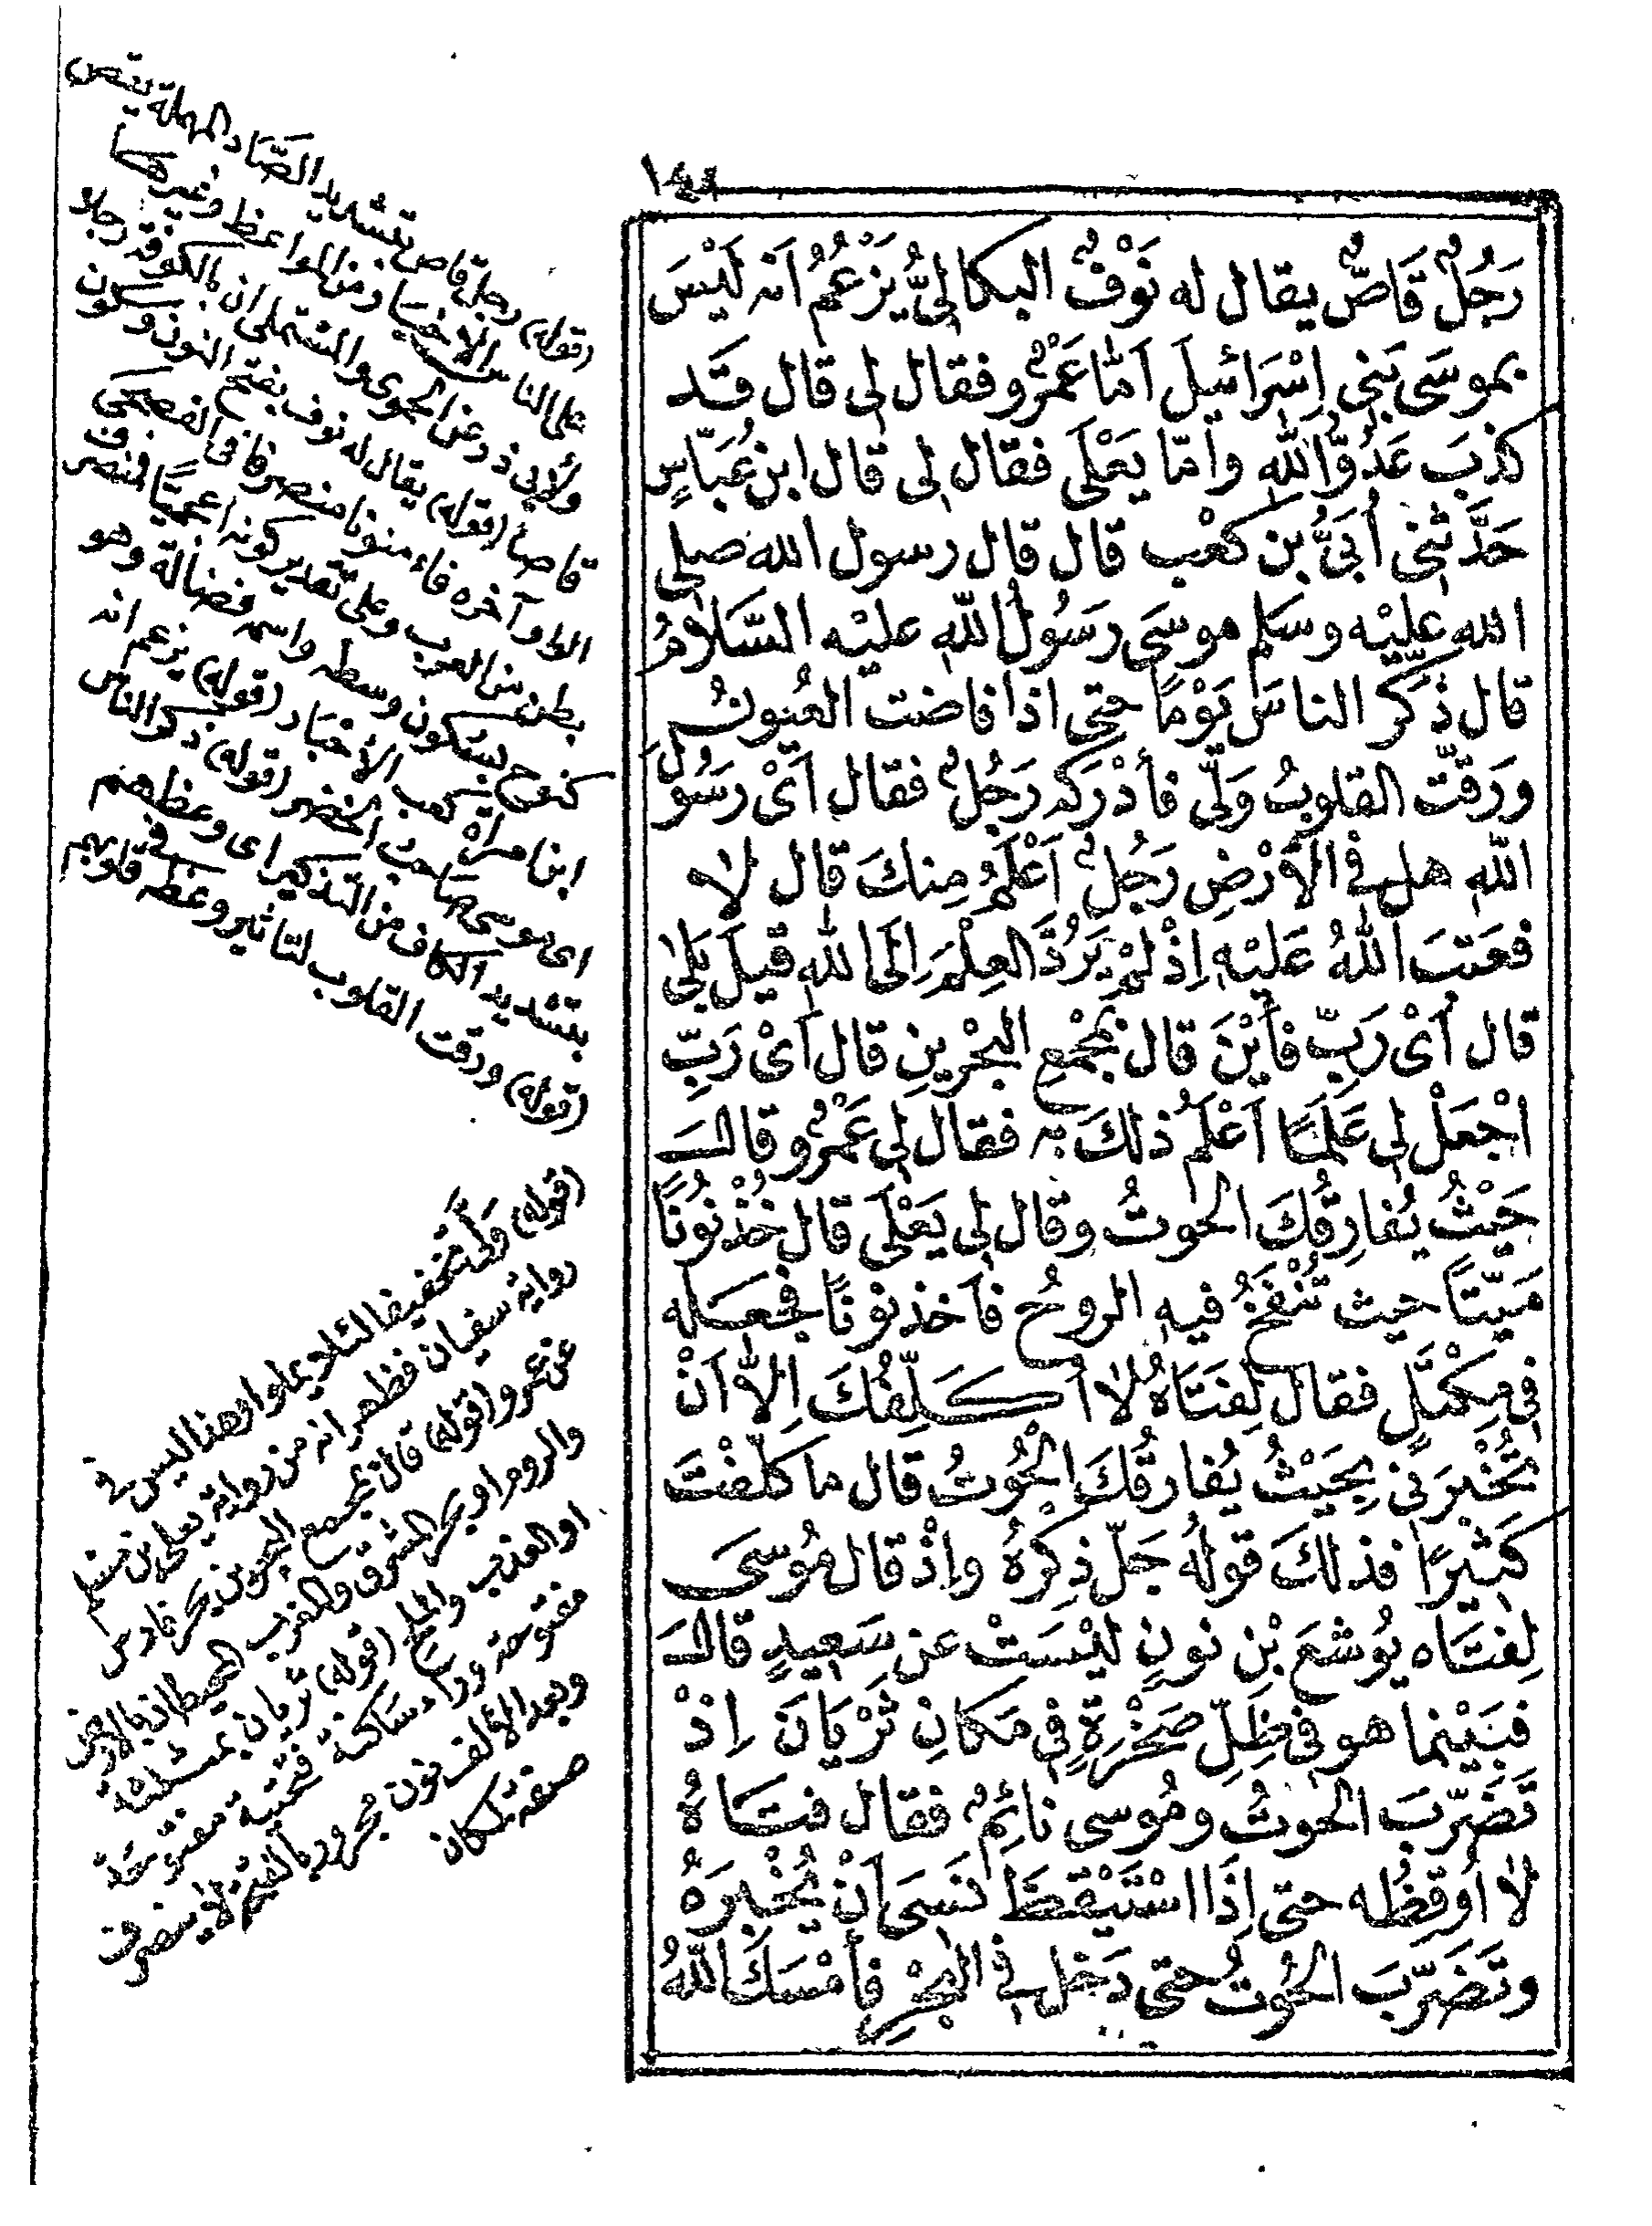 ١٤٩
رَجُلٌ قَاصٌّ يقال له نَوْفٌ البكالِىُّ يَزْعُمُ اَنه لَيْسَ
بموسَى بَنِى اِسْرَائيلَ اَمّا عَمْرٌو فقال لِى قال قَد
كذبَ عَدُوُّ اللهِ وأمّا يَعْلَى فقال لِى قال ابن عُبَّاسٍ
حَدَّثنِى أُبَىُّ بن كعْب قال قال رسول الله صلى
الله عليْه وسلم موسَى رَسُولُ اللّهِ عليْه السَّلامُ
قال ذَكَّر الناسَ يَوْمًا حتى اذا فاضت العُيونُ
ورَقّت القلوبُ وَلَّى فأدْركه رَجُلٌ فقال اَىْ رَسُولَ
اللّهِ هل فى الأَرْضِ رَجُلٌ اَعْلَمُ مِنكَ قال لا
فعَتبَ اللهُ عَليْهِ اِذْ لمْ يَرُدَّ العِلْمَ اِلَى اللهِ قيلَ بَلىٰ
قال أىْ رَبِّ فأيْنَ قال بمَجْمَعِ البَحْرينِ قال اَىْ رَبِّ
اجْعَلْ لِى عَلَمًا اَعْلَمُ ذلكَ به فقال لِى عَمْرٌو قال
حَيْثُ يُفارِقُكَ الحوتُ وقال لِى يَعْلَى قال خُذْ نُونًا
مَيّتًا حيث تُنْفَخُ فيه الروحُ فأَخذ نونًا فجعَله
فى مِكْتَلٍ فقال لِفَتَاهُ لا اُكَلِّفُكَ اِلاّ اَنْ
تُخْبرَنى بِحَيْثُ يُفارقُكَ الحُوتُ قال ما كلّفْتَ
كَثيْرًا فذلكَ قولُه جَلّ ذِكرُهُ وإذْ قال مُوسَى
لِفتَاه يُوشعَ بْن نونٍ ليْسَتْ عن سَعِيدٍ قال
فبَيْنما هو فى ظِلِّ صَخْرةٍ فى مَكانٍ ثَرْيَانَ اِذْ
تَضَرّبَ الحوتُ ومُوسى نائمٌ فقال فتَاهُ
لا اُوقظُه حتى اِذَا اسْتَيْقظَ نَسىَ اَنْ يُخْبرَهُ
وتَضَرّبَ الحُوتُ حتى دَخل فى البَحْرِ فأمْسَكَ اللّهُ
(قوله) رجل قاص بتشديد الصَّاد المهملة يقص
على الناس الاخبار من المواعظ وغيرها
ولأبى ذر عن الحموى والمستملى ان بالكوفة رجلا
قاصا (قوله) يقال له نوف بفتح النون وسكون
الواو آخره فاء منونا منصرفا فى الفصحى
بطن من العرب وعلى تقدير كونه اعجميًّا فمنصرف
كنوح بسكون وسطه واسمه فضالة وهو
ابن امرأة كعب الأخبار (قوله) يزعم انه
اى موسى صاحب الخضر (قوله) ذكر الناس
بتشديد الكاف من التذكير اى وعظهم
(قوله) ورقت القلوب لتاثير وعظه فى قلوبهم
(قوله) وَلَّى تخفيفا لئلا يملوا وهذا ليس فى
رواية سفيان فظهر انه من رواية يعلى بن مسلم
عن عمرو (قوله) قال بمجمع البحرين بحر فارس
والروم او بحر المشرق والمغرب المحيطان بالارض
او العذب والملح (قوله) ثريان بمثلثة
مفتوحة وراء ساكنة فتحتية مفتوحة
وبعد الألف نون مجرور بالفتح لا ينصرف
صفة لمكان